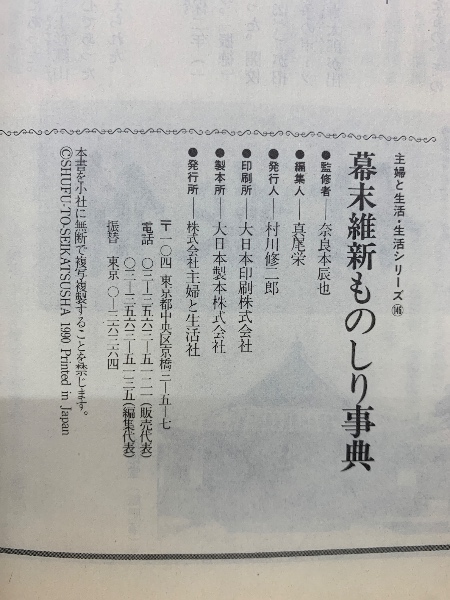 主婦と生活・生活シリーズ146
幕末維新ものしり事典
●監修者——奈良本辰也
●編集人——真尾栄
●発行人——村川修二郎
●印刷所——大日本印刷株式会社
●製本所——大日本製本株式会社
●発行所——株式会社主婦と生活社
〒一〇四 東京都中央区京橋二—五—七
電話 〇三—三五六三—五一二一(販売代表)
〇三—三五六三—五一三五(編集代表)
振替 東京 〇—三六三六四
本書を小社に無断で複写複製することを禁じます。
©SHUFU-TO-SEIKATSUSHA 1990 Printed in Japan